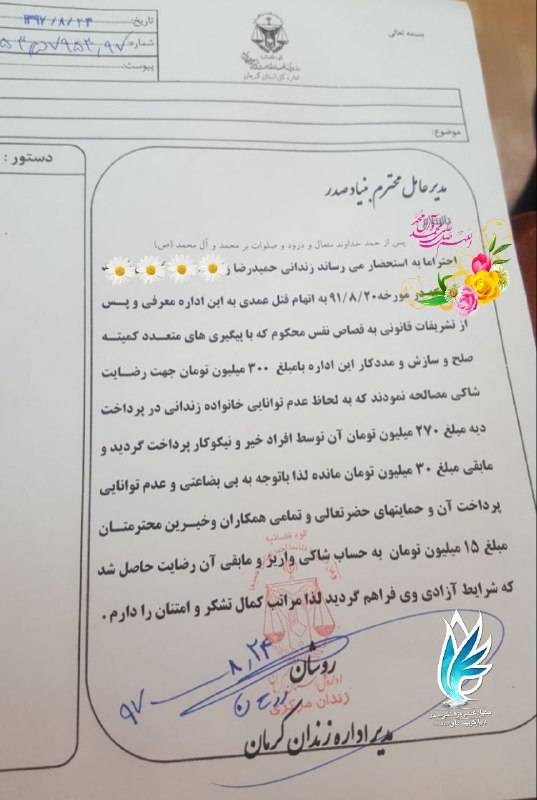 بسمه تعالی
تاریخ: ۱۳۹۷/۸/۲۴
شماره:
پیوست:
قوه قضائیه
اداره کل استان کرمان
موضوع:
دستور :
مدیر عامل محترم بنیاد صدر
پس از حمد خداوند متعال و درود و صلوات بر محمد و آل محمد (ص)
احتراما به استحضار می رساند زندانی حمیدرضا
در مورخه ۹۱/۸/۲۰ به اتهام قتل عمدی به این اداره معرفی و پس
از تشریفات قانونی به قصاص نفس محکوم که با پیگیری های متعدد کمیته
صلح و سازش و مددکار این اداره بامبلغ ۳۰۰ میلیون تومان جهت رضایت
شاکی مصالحه نمودند که به لحاظ عدم توانایی خانواده زندانی در پرداخت
دیه مبلغ ۲۷۰ میلیون تومان آن توسط افراد خیر و نیکوکار پرداخت گردید و
مابقی مبلغ ۳۰ میلیون تومان مانده لذا باتوجه به بی بضاعتی و عدم توانایی
پرداخت آن و حمایتهای حضرتعالی و تمامی همکاران وخیرین محترمتان
مبلغ ۱۵ میلیون تومان به حساب شاکی واریز و مابقی آن رضایت حاصل شد
که شرایط آزادی وی فراهم گردید لذا مراتب کمال تشکر و امتنان را دارم .
قوه قضائیه
روشان
۹۷ ۸٫۲۴
زندان مرکزی
مدیر اداره زندان کرمان